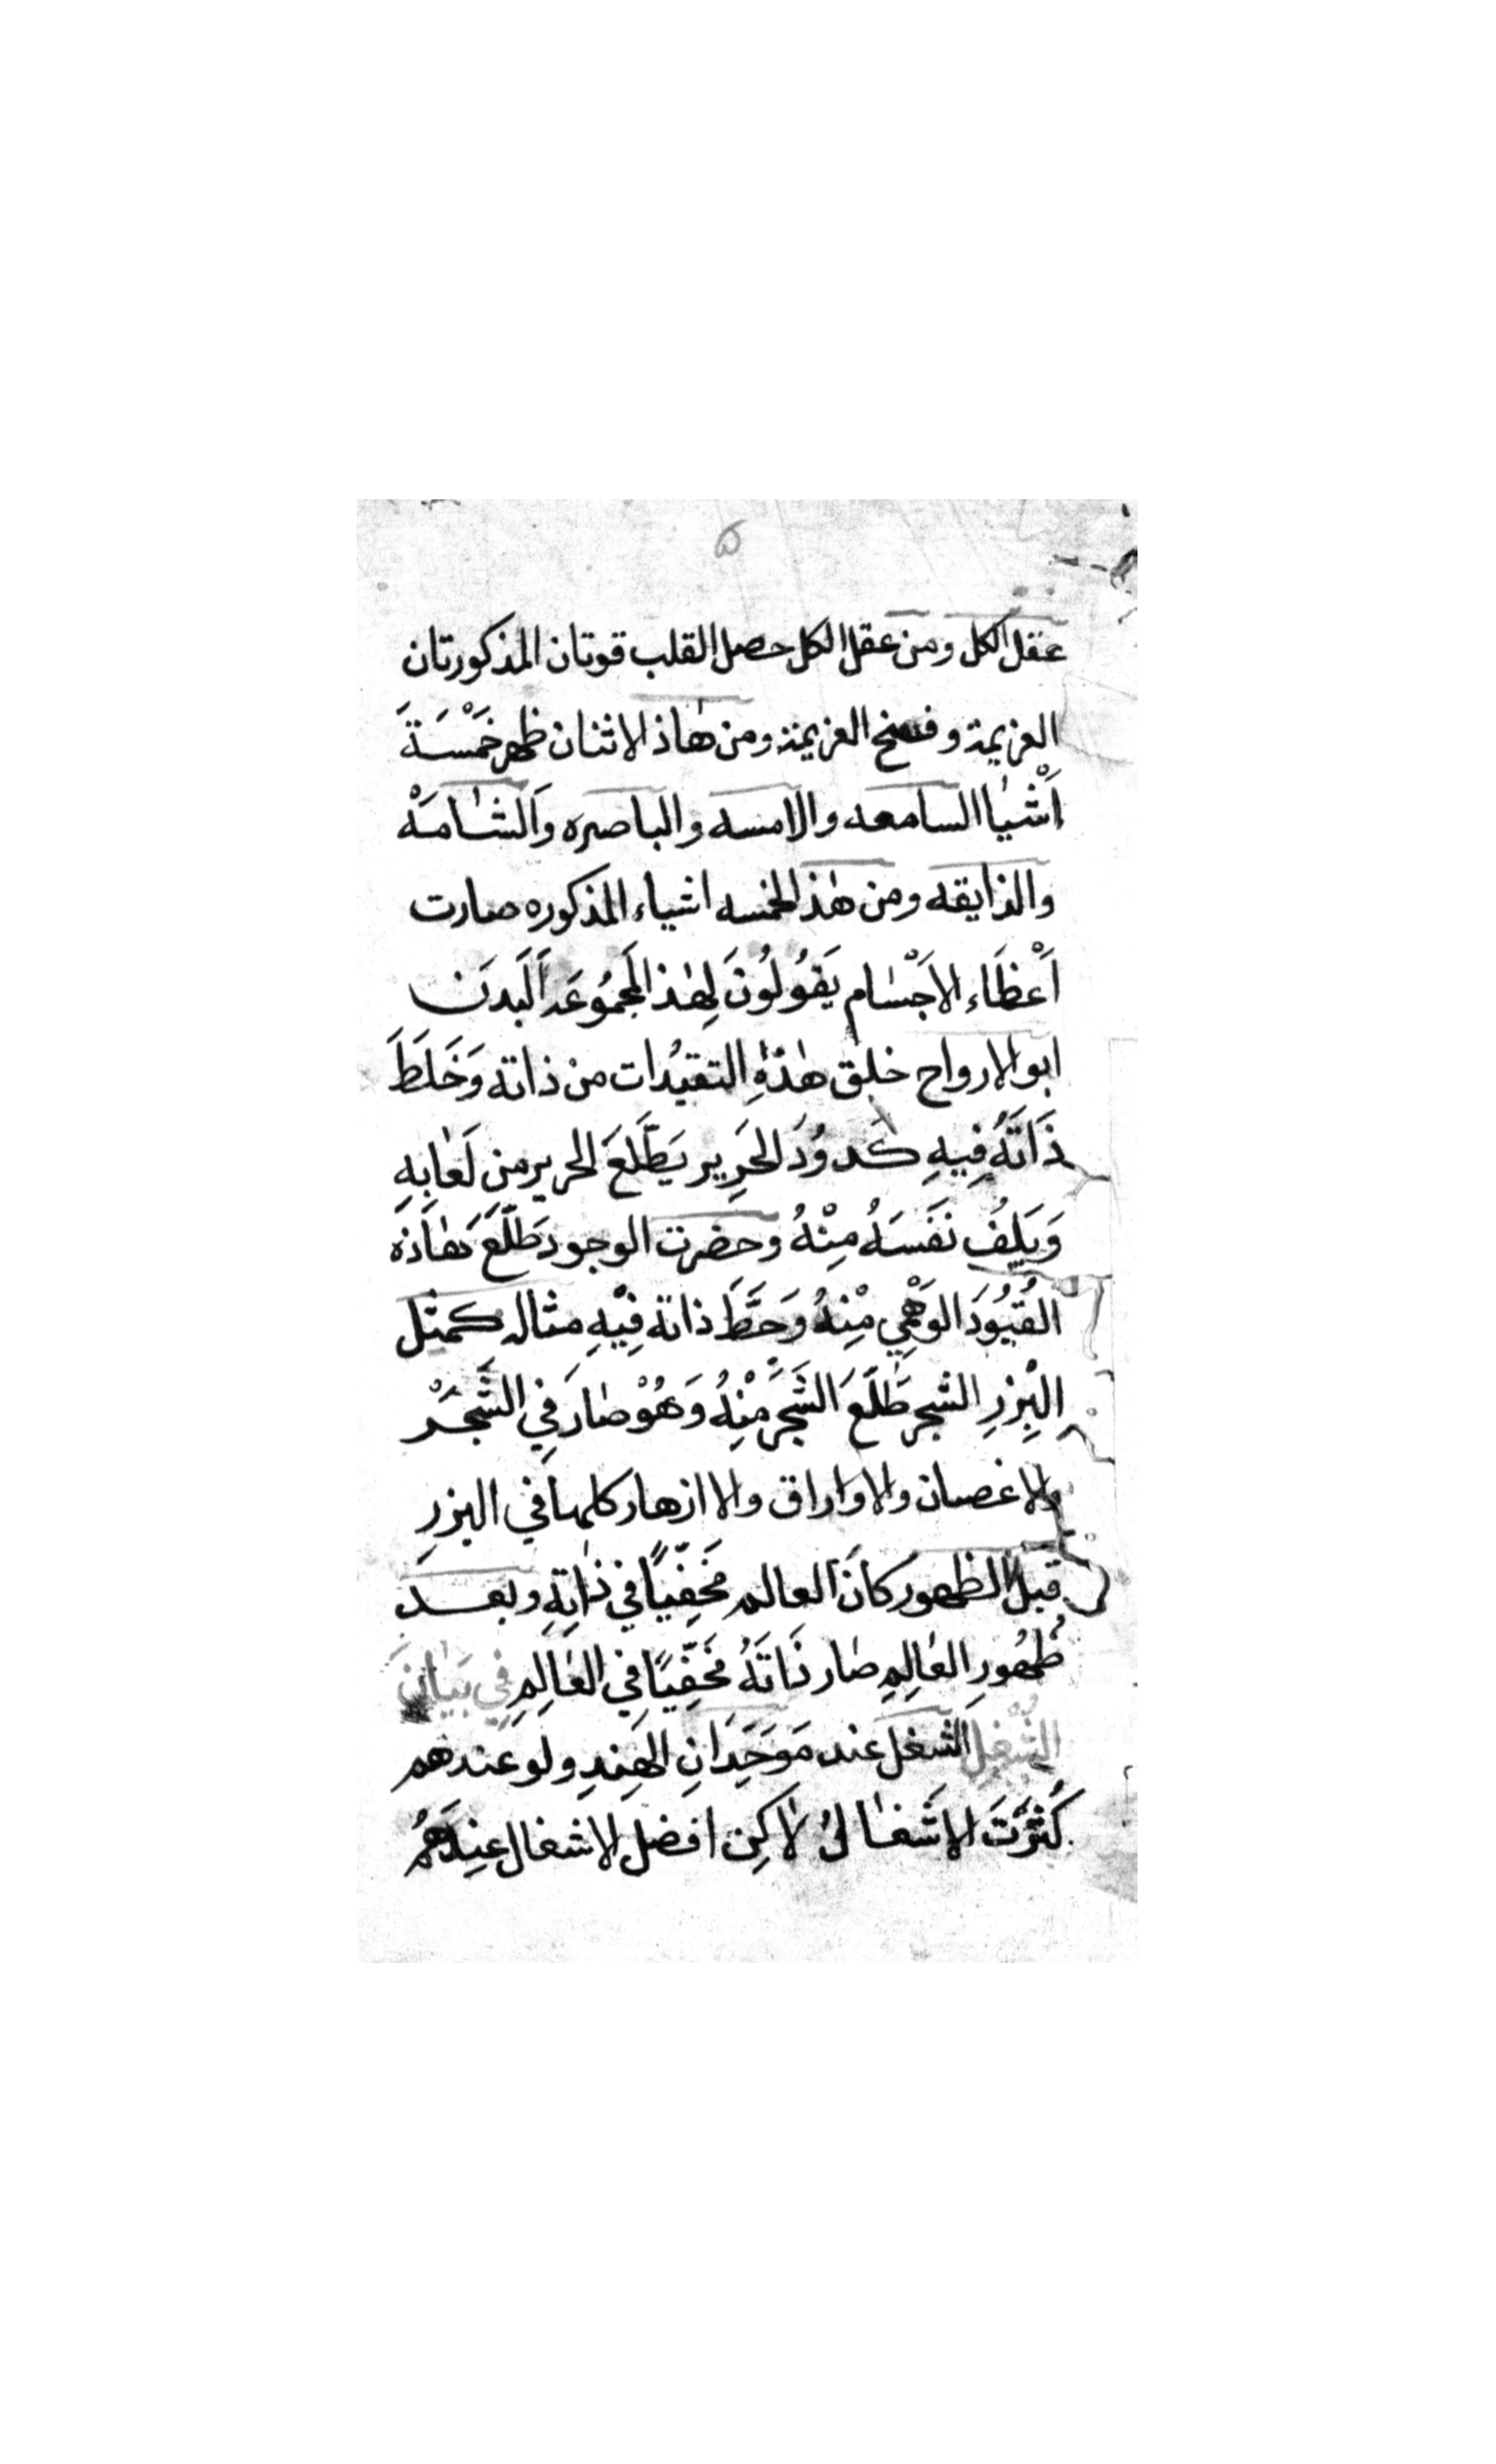 ۵
عقل الكل ومن عقل الكل حصل القلب قوتان المذكورتان
العزيمة و فسخ العزيمة ومن هٰاذ الاثنان ظهر خَمْسَةَ
اَشْيٰا السامعه والامسه والباصره وَالشٰامَهْ
والذايقه ومن هٰذ الخمسه اشياء المذكوره صارت
اَعْظَاء الاَجْسٰام يَقُولُونَ لِهٰذ المَجمُوعَه اَلبَدَن
ابو الارواح خلق هٰذِهِ التقيُدات من ذاته وَخَلَطَ
ذَاتَهُ فِيهِ كَدوُدَ الحَرِير يَطَّلَعَ الحرير من لَعٰابِهِ
وَيَلِفُ نَفَسَهُ مِنْهُ وحضرت الوجود طَلَّعَ هٰاذَه
القُيُودَ الوَهْمِي مِنْهُ وَحَطَّ ذاته فِيْهِ مثاله كمثل
البِزرِ الشجر طَلَّعَ الشَجَرَ مِنْهُ وَهُوْ صٰارَ فِي الشَّجَرْ
والاغصان والاواراق والا ازهار كلها في البزرِ
قبل الظهور كانَ العالم مَخفِيّاً في ذٰاتِهِ وبعد
ظُهُورِ العٰالِمِ صٰار ذَاتَهُ مَخفِيّاً فِي العٰالِمِ فِي بَيٰانَ
الشُغْلِ الشغل عند مَوَحَدَانِ الهِندِ ولو عندهم
كُثرَتَ الاشَغٰالُ لاٰكِن افضل الاشغال عِندَهُم